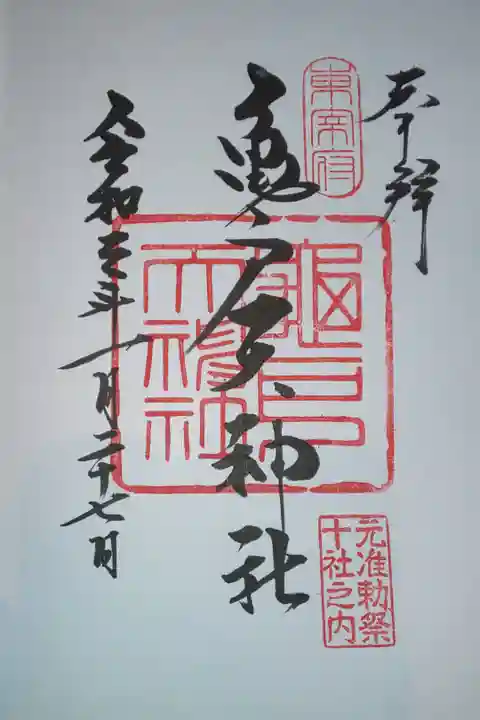 奉拝
東宰府
亀戸天神社
元准勅祭
十社之内
令和三年一月二十七日